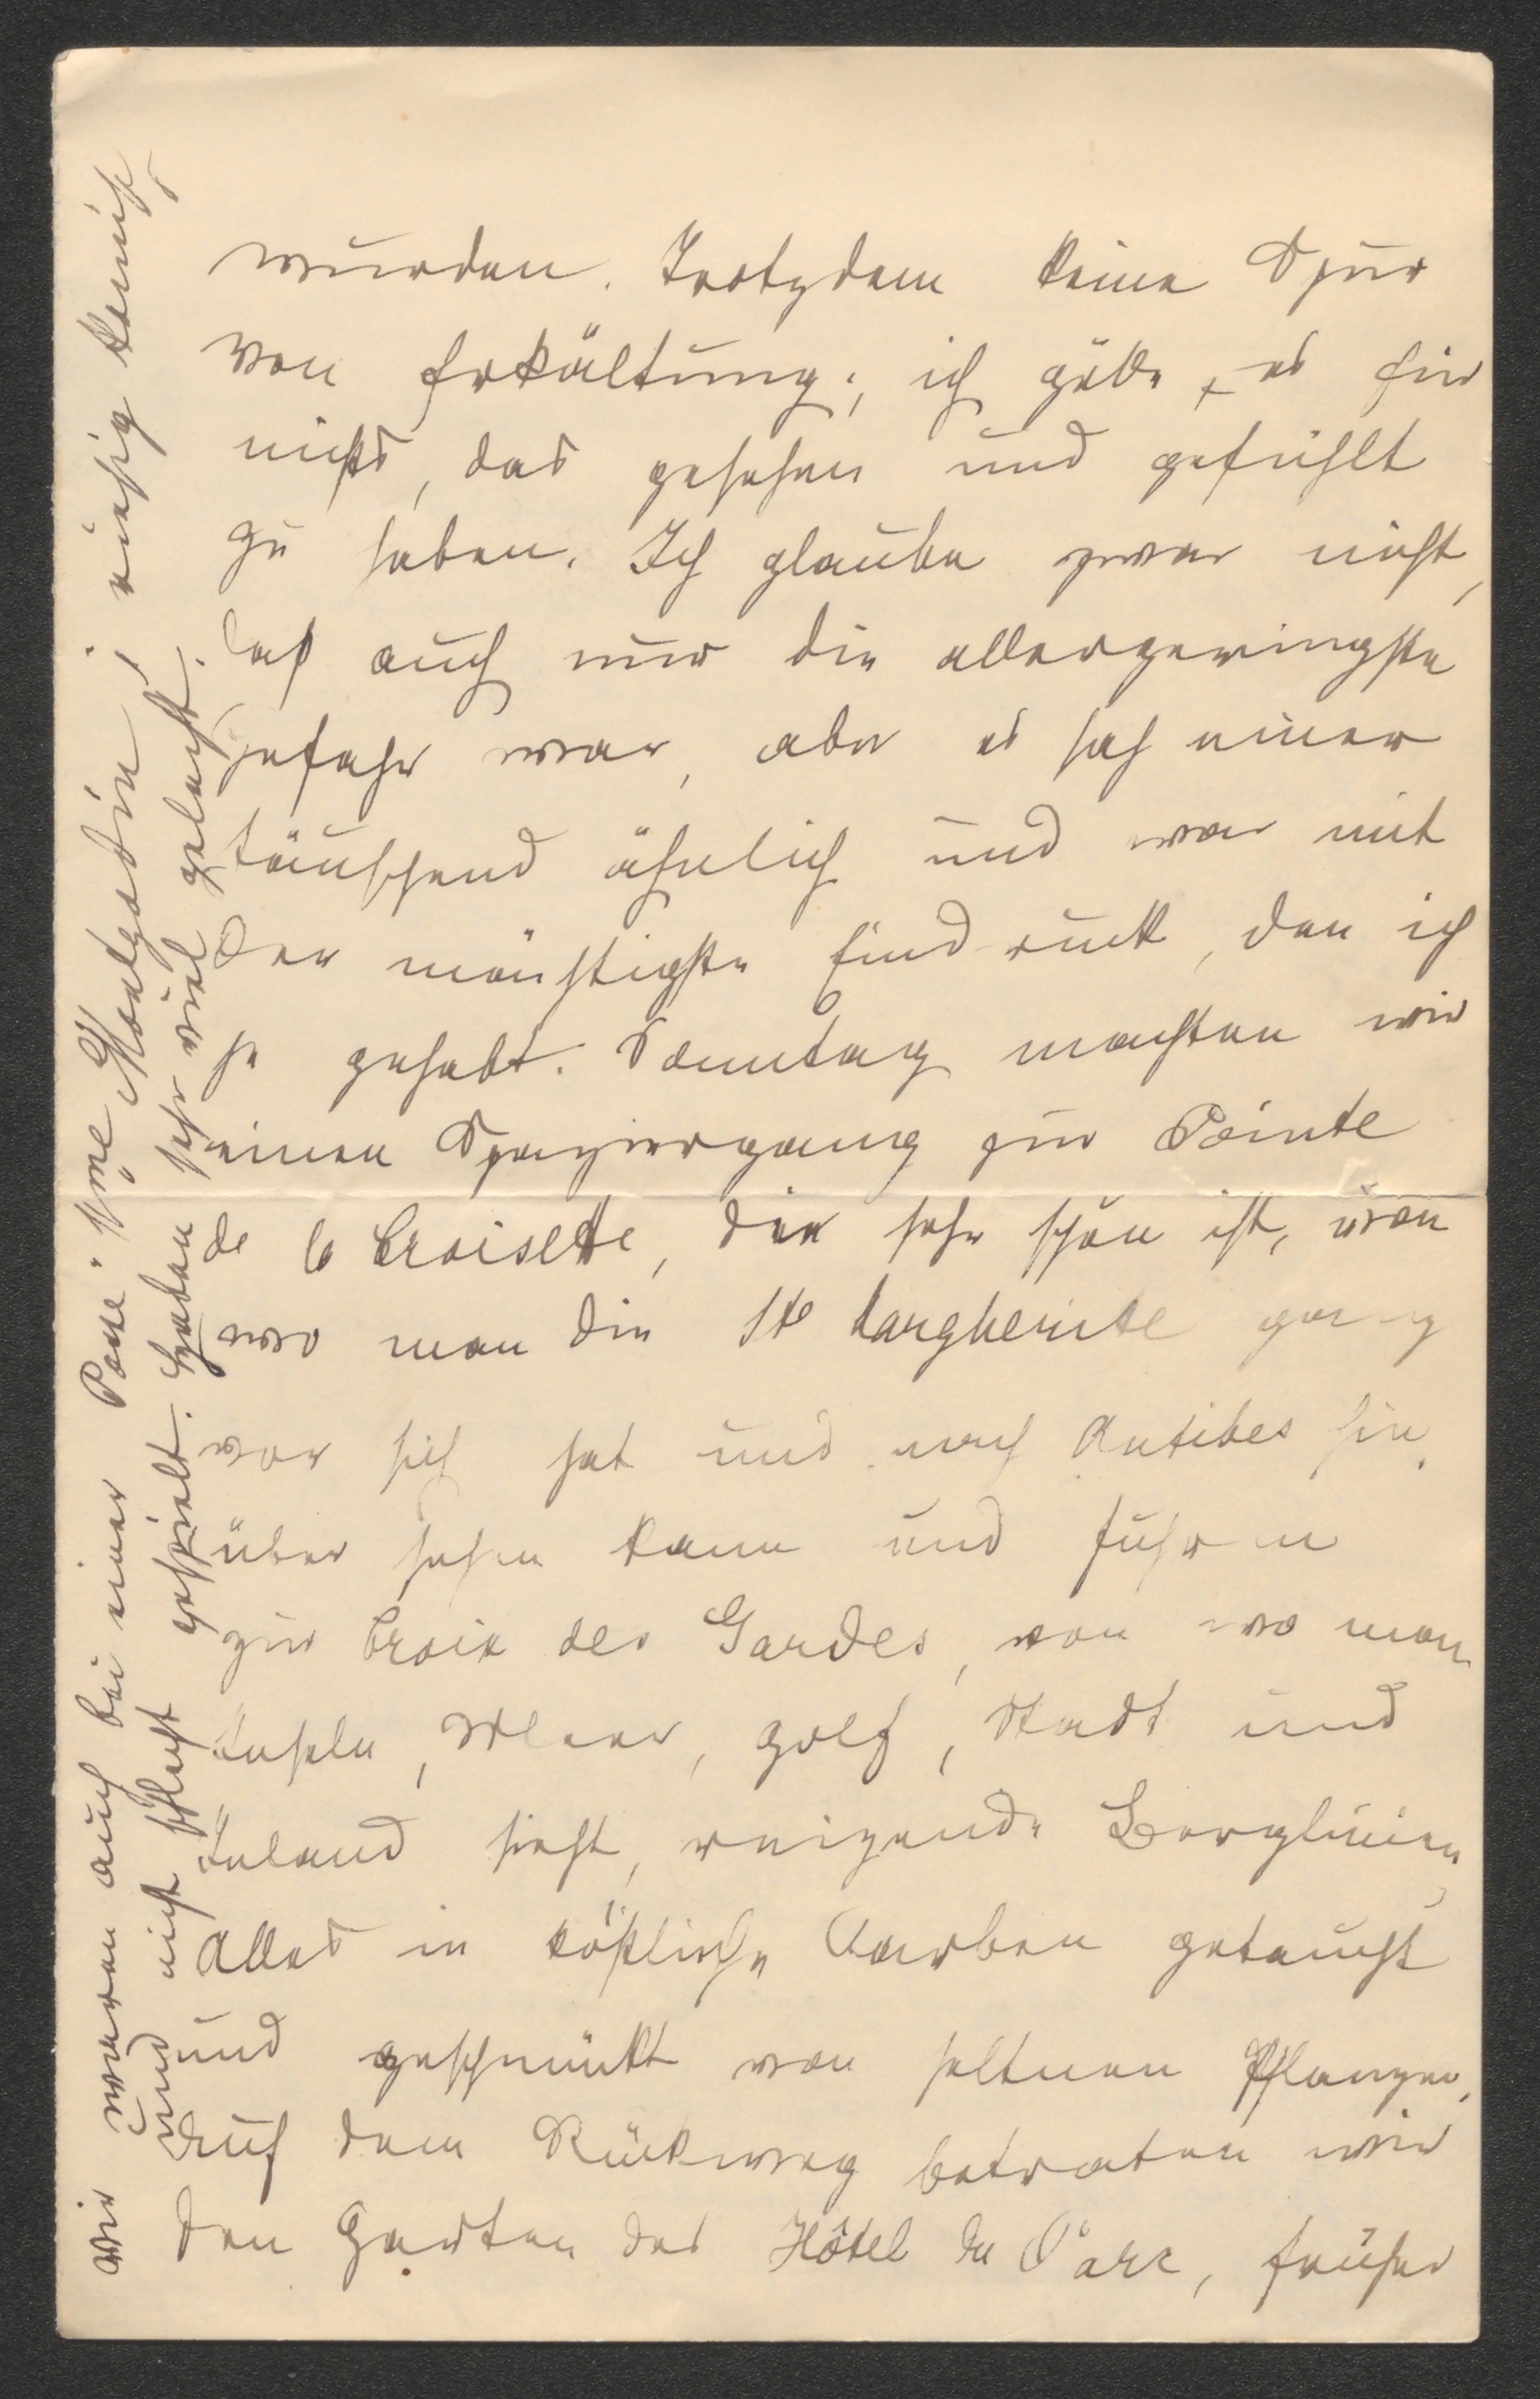 wurden. Trotzdem keine Spur
von Erkältung; ich gäbe es für
nichts, das gesehen und gefühlt
zu haben. Ich glaube zwar nicht,
daß auch nur die allergeringste
Gefahr war, aber es sah einer
täuschend ähnlich und war mit
der mächtigste Eindruck, den ich
je gehabt. Sonntag machten wir
einen Spaziergang zur Pointe
de la Croisette, die sehr schön ist, von
wo man die Ste Margherite ganz
vor sich hat und nach Antibes hin
über sehen kann und fuhren
zur Croix des Gardes, von wo man
Inseln, Meer, Golf, Stadt und
Inland sieht, reizende Berglinien,
Alles in köstliche Farben getaucht
und geschmückt von seltnen Pflanzen.
Auf dem Rückweg betraten wir
den Garten des Hôtel du Parc, früher
Wir waren auch bei einer Posse "Mme Mongodin", riesig komisch
und nicht schlecht gespielt. Haben sehr viel gelacht.